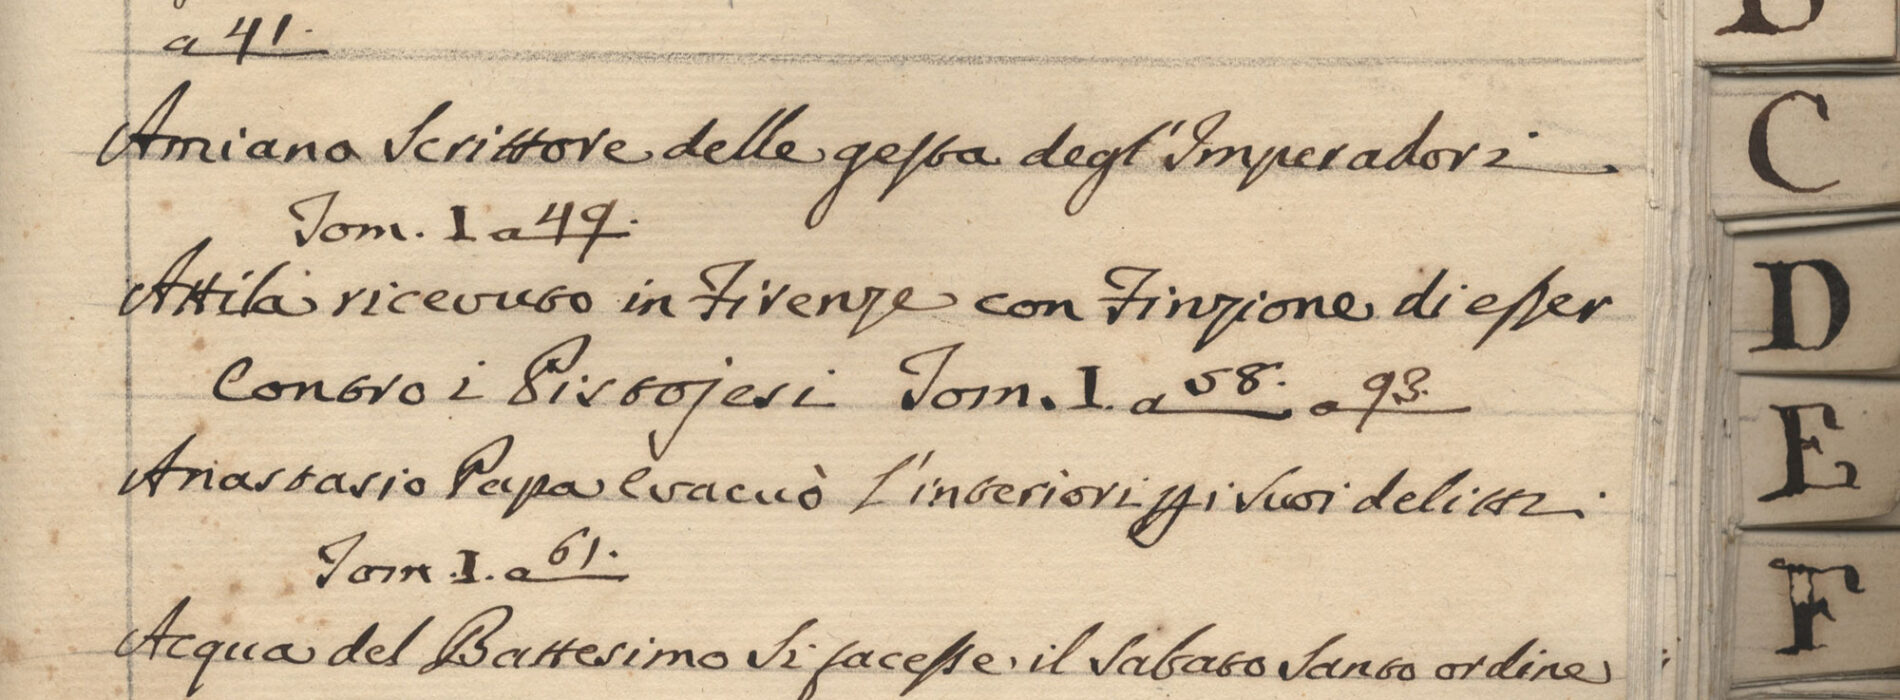 a 41.
Amiano Scrittore delle gesta degl'Imperadori
Tom. I a 49.
Attila ricevuto in Firenze con Finzione di esser
Contro i Pistojesi Tom. I. a 58. a 93.
Anastasio Papa evacuò l'interiori pp i suoi delitti.
Tom. I. a 61.
Acqua del Battesimo si facesse il Sabato Santo ordine
B
C
D
E
F